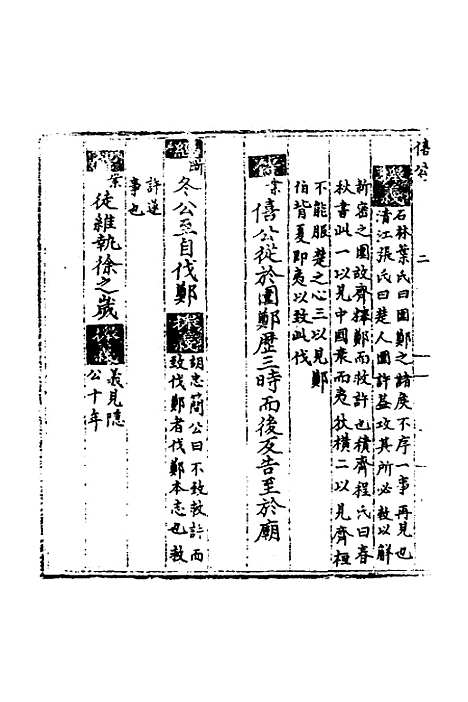 僖公
二
石林葉氏曰圍鄭之諸侯不序一事再見也
清江張氏曰楚人圍許益攻其所必救以解
新密之圍故齊釋鄭而救許也積齊程氏曰春
秋書此一以見中國衰而夷狄橫二以見齊桓
不能服楚之心三以見鄭
伯背夏即夷以致此伐
僖公從於圍鄭歷三時而後反告至於廟
冬公至自伐鄭
胡忠簡公曰不致救許而
致伐鄭者伐鄭本志也救
許遂
事也
徒維執徐之歲
義見隱
公十年